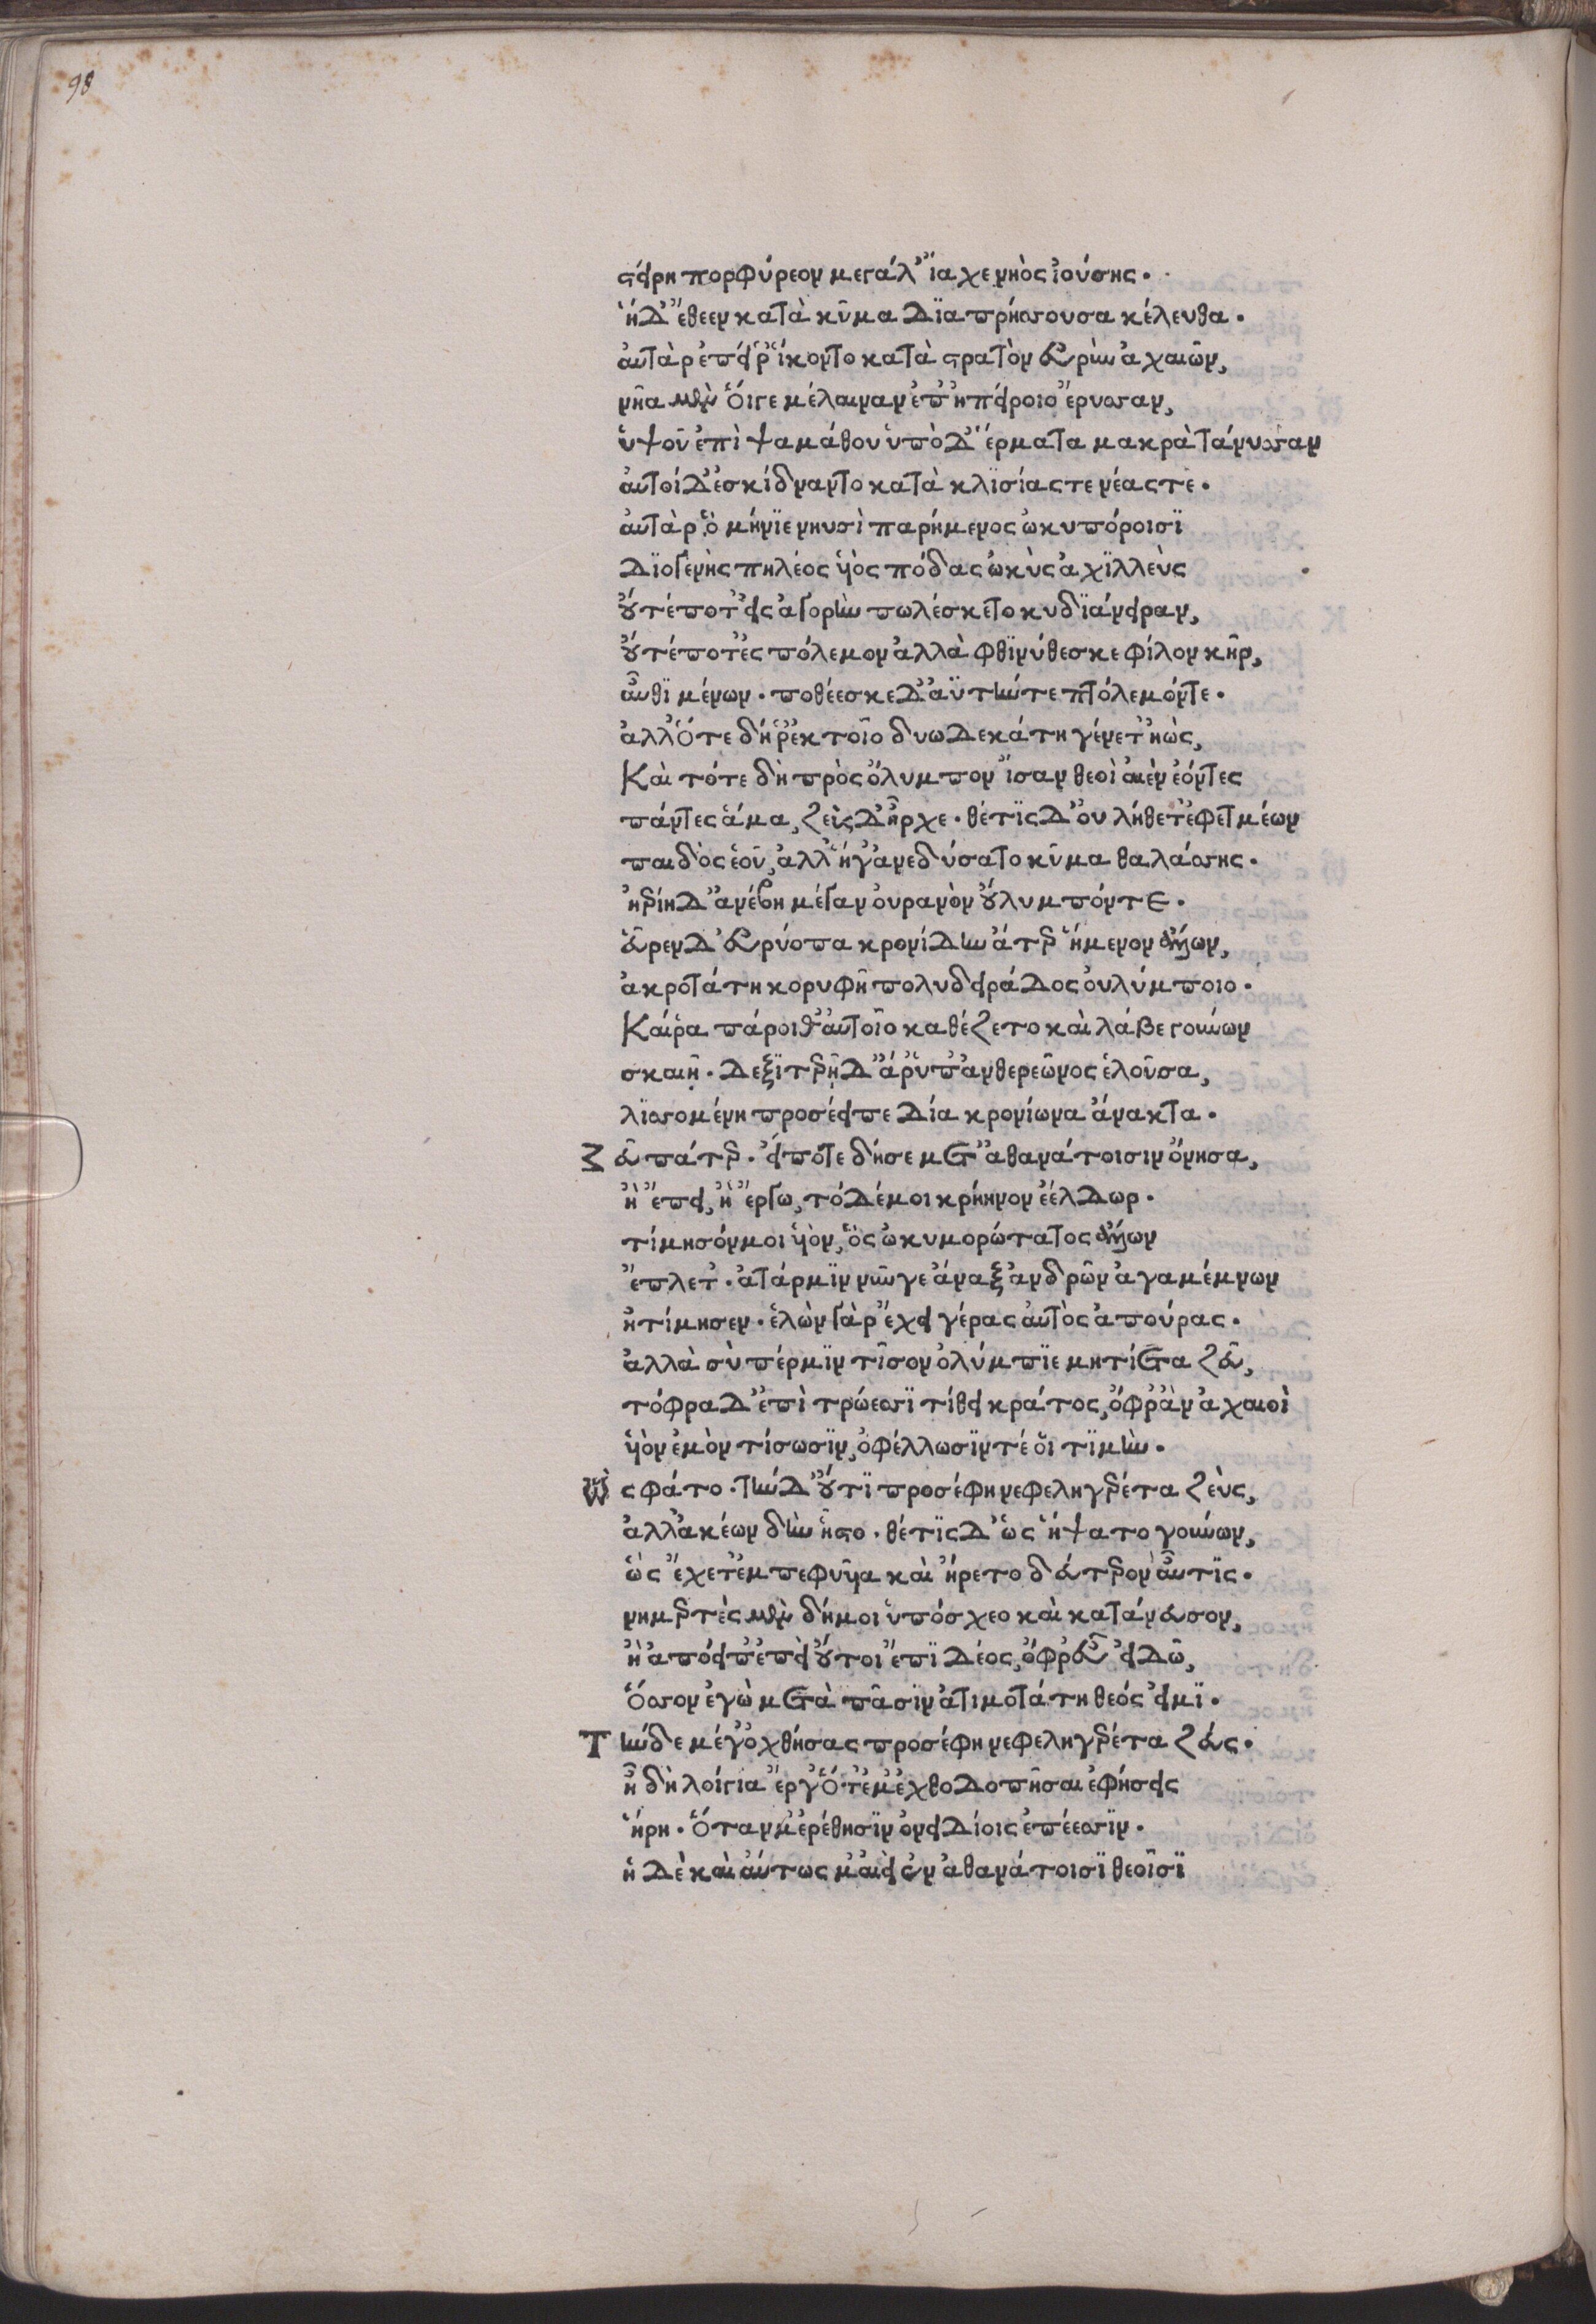 98
στείρη πορφύρεον μεγάλ' ἴαχε νηὸς ἰούσης.
ἡ δ' ἔθεεν κατὰ κῦμα διαπρήσσουσα κέλευθα.
αὐτὰρ ἐπεί ῥ' ἵκοντο κατὰ στρατὸν εὐρὺν ἀχαιῶν,
νῆα μὲν ὅιγε μέλαιναν ἐπ' ἠπείροιο ἔρυσσαν,
ὑψοῦ ἐπὶ ψαμάθου ὑπὸ δ' ἕρματα μακρὰ τάνυσσαν
αὐτοὶ δ' ἐσκίδναντο κατὰ κλισίας τε νέας τε.
αὐτὰρ ὃ μήνιε νηυσὶ παρήμενος ὠκυπόροισι
διογενὴς πηλέος υἱὸς πόδας ὠκὺς ἀχιλλεὺς
οὔτέ ποτ' εἰς ἀγορὴν πωλέσκετο κυδιάνειραν,
οὔτέ ποτ' ἐς πόλεμον ἀλλὰ φθινύθεσκε φίλον κῆρ,
αὖθι μένων. ποθέεσκε δ' ἀϋτήν τε πτόλεμόν τε.
ἀλλ' ὅτε δή ῥ' ἐκ τοῖο δυωδεκάτη γένετ' ἠὼς,
Καὶ τότε δὴ πρὸς ὄλυμπον ἴσαν θεοὶ αἰὲν ἐόντες
πάντες ἅμα, ζεὺς δ' ἦρχε. θέτις δ' οὐ λήθετ' ἐφετμέων
παιδὸς ἑοῦ, ἀλλ' ἥγ' ἀνεδύσατο κῦμα θαλάσσης.
ἠερίη δ' ἀνέβη μέγαν οὐρανὸν οὔλυμπόν τε.
εὗρεν δ' εὐρύοπα κρονίδην ἄτερ ἥμενον ἄλλων,
ἀκροτάτη κορυφῇ πολυδειράδος οὐλύμποιο.
Καί ῥα πάροιθ' αὐτοῖο καθέζετο καὶ λάβε γούνων
σκαιῇ. δεξιτερῇ δ' ἄρ' ὑπ' ἀνθερεῶνος ἑλοῦσα,
λισσομένη προσέειπε δία κρονίωνα ἄνακτα.
Ζ εῦ πάτερ. εἴποτε δή σε μετ' ἀθανάτοισιν ὄνησα,
ἢ ἔπει, ἢ ἔργω, τόδέ μοι κρήηνον ἐέλδωρ.
τίμησόν μοι υἱὸν, ὃς ὠκυμορώτατος ἄλλων
ἔπλετ'. ἀτάρ μιν νῦν γε ἄναξ ἀνδρῶν ἀγαμέμνων
ἠτίμησεν. ἑλὼν γὰρ ἔχει γέρας αὐτὸς ἀπούρας.
ἀλλὰ σὺ πέρ μιν τῖσον ὀλύμπιε μητίετα ζεῦ,
τόφρα δ' ἐπὶ τρώεσσι τίθει κράτος, ὄφρ' ἂν ἀχαιοὶ
υἱὸν ἐμὸν τίσωσιν, ὀφέλλωσίν τέ ὁι τιμήν.
Ὣ ς φάτο. τὴν δ' οὔτι προσέφη νεφεληγερέτα ζεὺς,
ἀλλ' ἀκέων δὴν ἧστο. θέτις δ' ὡς ἥψατο γούνων,
ὣς ἔχετ' ἐμπεφυῖα καὶ ἤρετο δεύτερον αὖτις.
νημερτὲς μὲν δή μοι ὑπόσχεο καὶ κατάνευσον,
ἢ ἀπόειπ' ἐπεὶ οὔ τοι ἔπι δέος, ὄφρ' εὖ εἰδῶ,
ὅσσον ἐγὼ μετὰ πᾶσιν ἀτιμοτάτη θεός εἰμι.
Τ ὴν δε μέγ' ὀχθήσας προσέφη νεφεληγερέτα ζεύς.
ἦ δὴ λοίγια ἔργ' ὅτ' ἔμ' ἐχθοδοπῆσαι ἐφήσεις
ἥρη. ὅταν μ' ἐρέθησιν ὀνειδίοις ἐπέεσσιν.
ἡ δὲ καὶ αὔτως μ' αἰεὶ ἐν ἀθανάτοισι θεοῖσι